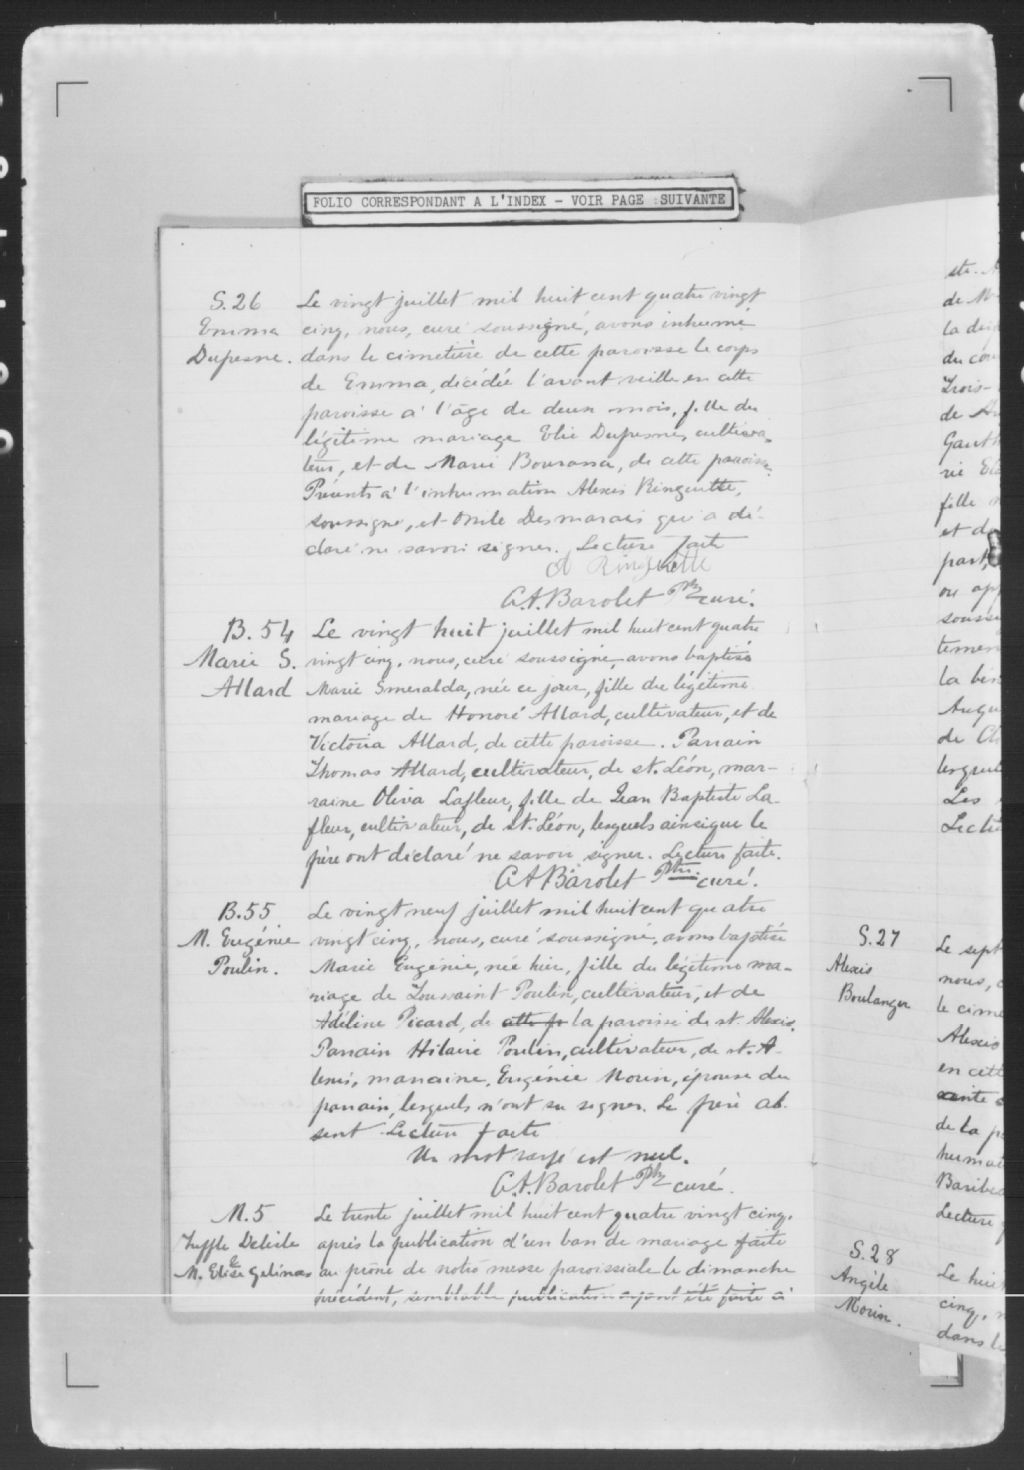 FOLIO CORRESPONDANT A L'INDEX - VOIR PAGE SUIVANTE
S. 26
Emma
Dufresne.
Le vingt juillet mil huit cent quatre vingt
cinq, nous, curé soussigné, avons inhumé
dans le cimetière de cette paroisse le corps
de Emma, décédée l'avant veille en cette
paroisse à l'âge de deux mois, fille du
légitime mariage Elie Dufresne, cultiva-
teur, et de Marie Bourassa, de cette paroisse.
Présents à l'inhumation Alexis Ringuette,
soussigné, et Desmarais qui a dé-
claré ne savoir signer. Lecture faite
A Ringuette
A.A. Barolet Ptre curé.
B. 54
Marie S.
Allard
Le vingt huit juillet mil huit cent quatre
vingt cinq, nous, curé soussigné, avons baptisé
Marie Smeralda, née ce jour, fille du légitime
mariage de Honoré Allard, cultivateur, et de
Victoria Allard, de cette paroisse. Parrain
Thomas Allard, cultivateur, de st. Léon, mar-
raine Oliva Lafleur, fille de Jean Baptiste La-
fleur, cultivateur, de st. Léon, lesquels ainsi que le
père ont déclaré ne savoir signer. Lecture faite.
A.A. Barolet Ptre curé.
B. 55
M. Eugénie
Poulin.
Le vingt neuf juillet mil huit cent quatre
vingt cinq, nous, curé soussigné, avons baptisé
Marie Eugénie, née hier, fille du légitime ma-
riage de Toussaint Poulin, cultivateur, et de
Adéline Picard, de cette pr la paroisse de st. Alexis.
Parrain Hilaire Poulin, cultivateur, de st. A-
lexis, marraine, Eugénie Morin, épouse du
parrain, lesquels n'ont su signer. Le père ab-
sent Lecture faite
Un mot rayé est nul.
A.A. Barolet Ptre curé.
M. 5
Delisle
&
M. Elise Gelinas
Le trente juillet mil huit cent quatre vingt cinq,
après la publication d'un ban de mariage faite
au prône de notre messe paroissiale le dimanche
précédent, semblable publication ayant été faite à
ste. A
de M
la
du
Trois-
de
fille
et de
part,
ou
la
de
Les
S. 27
Alexis
Boulanger
Le sept
nous,
le cime
Alexis
en cett
de la
Lecture
S. 28
Angèle
Morin.
Le hui
cinq,
dans le